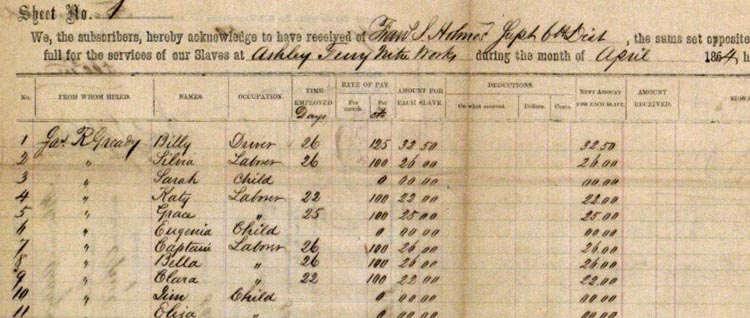 Sheet No. 1
We, the subscribers, hereby acknowledge to have received of Fran. S. Holmes Supt 6th Dist, the sums set opposite
full for the services of our Slaves at Ashley Ferry Nitre Works during the month of April 1864, h
No. FROM WHOM HIRED. NAMES. OCCUPATION. TIME EMPLOYED Days RATE OF PAY. Per month. Per cts AMOUNT FOR EACH SLAVE. DEDUCTIONS. On what account. Dollars. Cents. NETT AMOUNT FOR EACH SLAVE. AMOUNT RECEIVED. SIGNA
1 Jas. R Gready Billy Driver 26 125 32.50 32.50
2 " Silvia Laborer 26 100 26 00 26.00
3 " Sarah Child 0 00 00 00.00
4 " Katy Laborer 22 100 22 00 22.00
5 " Grace " 25 100 25 00 25.00
6 " Eugenia Child 0 00 00 00.00
7 " Captain Laborer 26 100 26 00 26.00
8 " Bella " 26 100 26 00 26.00
9 " Clara " 22 100 22 00 22.00
10 " Jim Child 0 00 00 00.00
11 " Eliza " 0 00 00 00.00